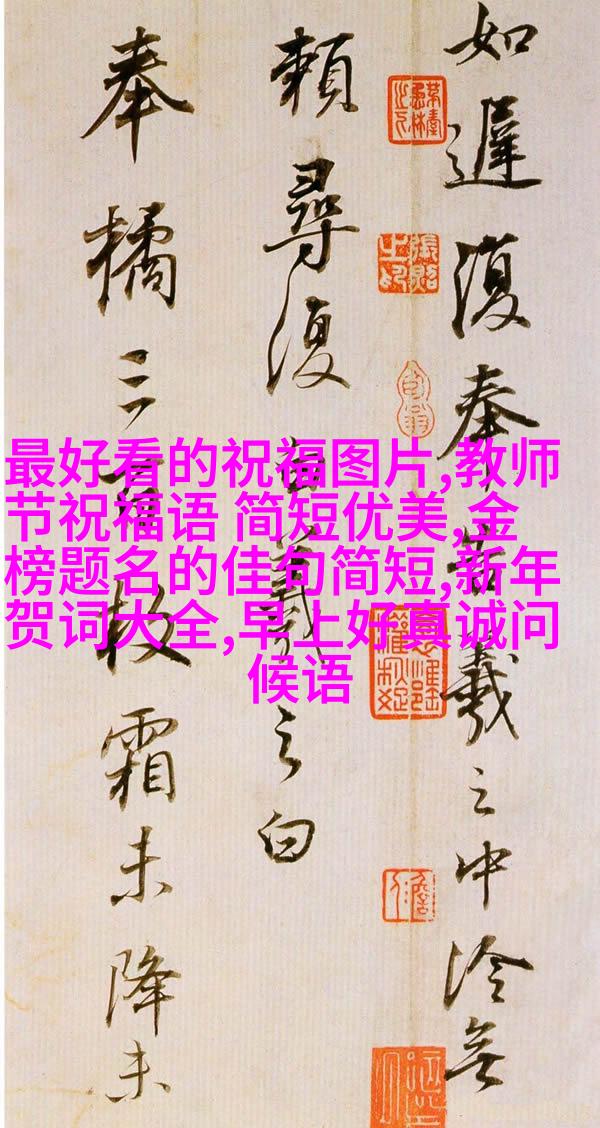 如遲復奉告羲之中冷無
賴尋復白羲之白
奉橘三百枚霜未降未
最好看的祝福图片,教师
节祝福语 简短优美,金
榜题名的佳句简短,新年
贺词大全,早上好真诚问
候语